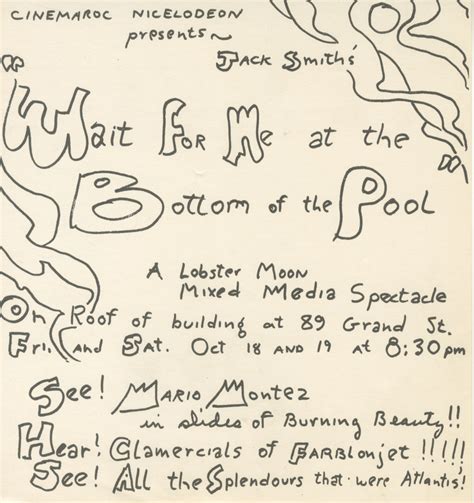 CINEMAROC NICELODEON
presents~
Jack Smiths'
"Wait For Me at the
Bottom of the Pool"
A Lobster Moon
Mixed Media Spectacle
On Roof of building at 89 Grand St.
Fri. and Sat. Oct 18 AND 19 at 8:30pm
See! Mario Montez
in slides of Burning Beauty!!
Hear! Glamercials of Farblonjet !!!!!
See! All the Splendours that were Atlantis!